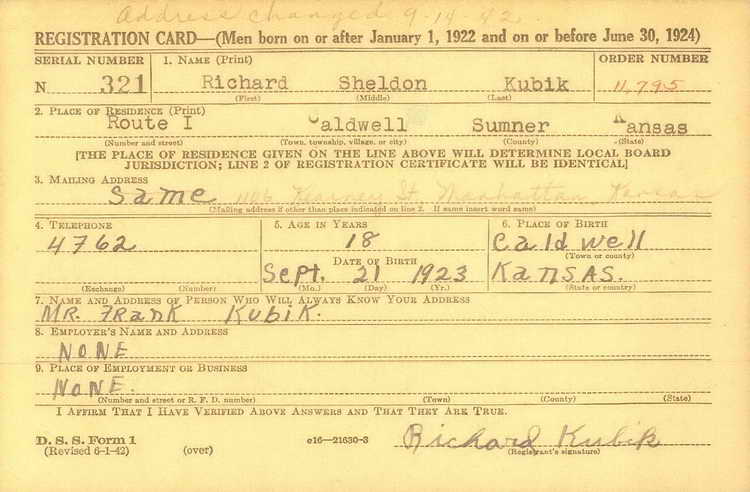 Address changed 9-14-42.
REGISTRATION CARD—(Men born on or after January 1, 1922 and on or before June 30, 1924)
SERIAL NUMBER 1. NAME (Print) ORDER NUMBER
N 321 Richard Sheldon Kubik 11,795
(First) (Middle) (Last)
2. PLACE OF RESIDENCE (Print)
Route I Caldwell Sumner Kansas
(Number and street) (Town, township, village, or city) (County) (State)
[THE PLACE OF RESIDENCE GIVEN ON THE LINE ABOVE WILL DETERMINE LOCAL BOARD
JURISDICTION; LINE 2 OF REGISTRATION CERTIFICATE WILL BE IDENTICAL]
3. MAILING ADDRESS
Same St Manhattan, Kansas
(Mailing address if other than place indicated on line 2. If same insert word same)
4. TELEPHONE 5. AGE IN YEARS 6. PLACE OF BIRTH
4762 18 Caldwell
(Town or county)
DATE OF BIRTH
Sept. 21 1923 Kansas.
(Exchange) (Number) (Mo.) (Day) (Yr.) (State or country)
7. NAME AND ADDRESS OF PERSON WHO WILL ALWAYS KNOW YOUR ADDRESS
MR. FRANK KUBIK.
8. EMPLOYER'S NAME AND ADDRESS
NONE
9. PLACE OF EMPLOYMENT OR BUSINESS
NONE.
(Number and street or R. F. D. number) (Town) (County) (State)
I AFFIRM THAT I HAVE VERIFIED ABOVE ANSWERS AND THAT THEY ARE TRUE.
D. S. S. Form 1
(Revised 6-1-42) (over) c16-21630-3 Richard Kubik
(Registrant's signature)